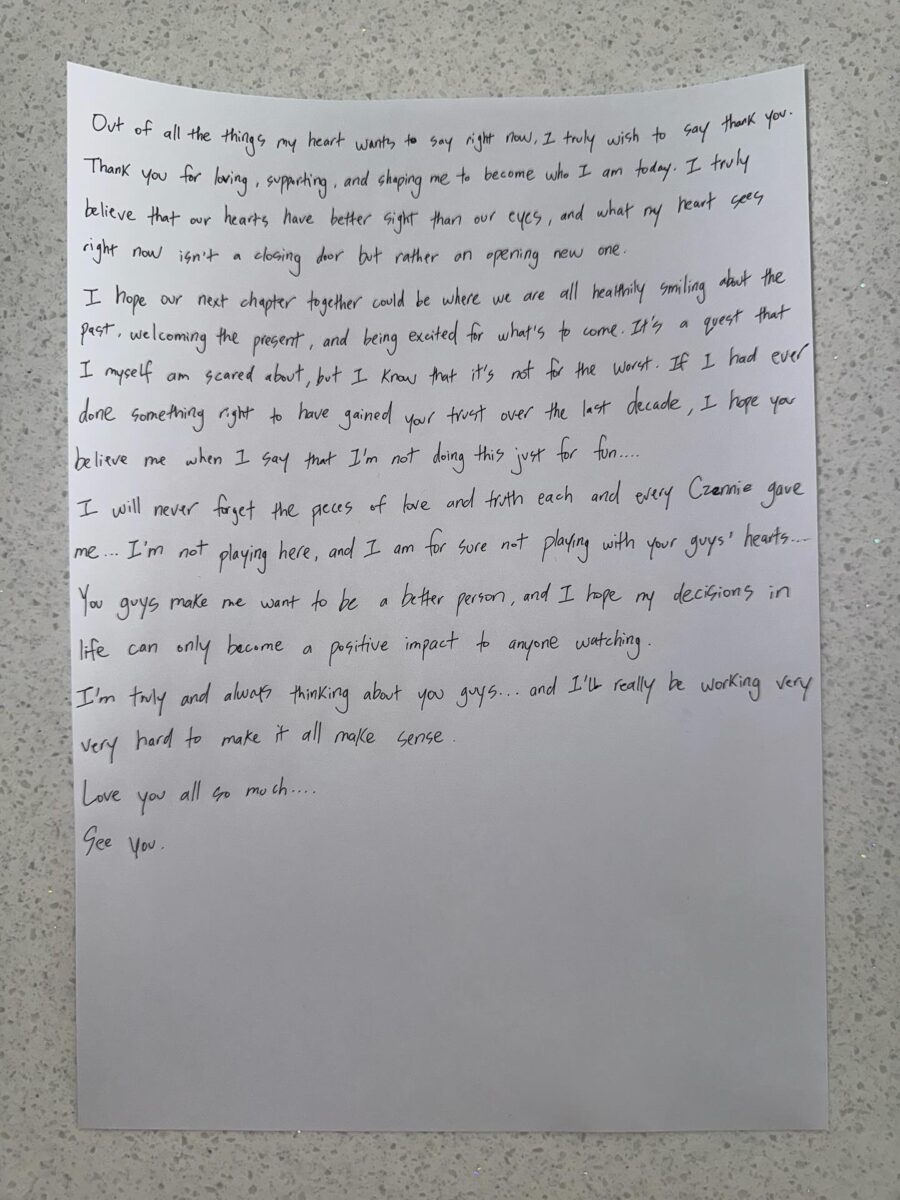 Out of all the things my heart wants to say right now, I truly wish to say thank you.
Thank you for loving, supporting, and shaping me to become who I am today. I truly
believe that our hearts have better sight than our eyes, and what my heart sees
right now isn't a closing door but rather an opening new one.
I hope our next chapter together could be where we are all healthily smiling about the
past, welcoming the present, and being excited for what's to come. It's a quest that
I myself am scared about, but I know that it's not for the worst. If I had ever
done something right to have gained your trust over the last decade, I hope you
believe me when I say that I'm not doing this just for fun....
I will never forget the pieces of love and truth each and every Czennie gave
me... I'm not playing here, and I am for sure not playing with your guys' hearts....
You guys make me want to be a better person, and I hope my decisions in
life can only become a positive impact to anyone watching.
I'm truly and always thinking about you guys... and I'll really be working very
very hard to make it all make sense.
Love you all so much....
See you.